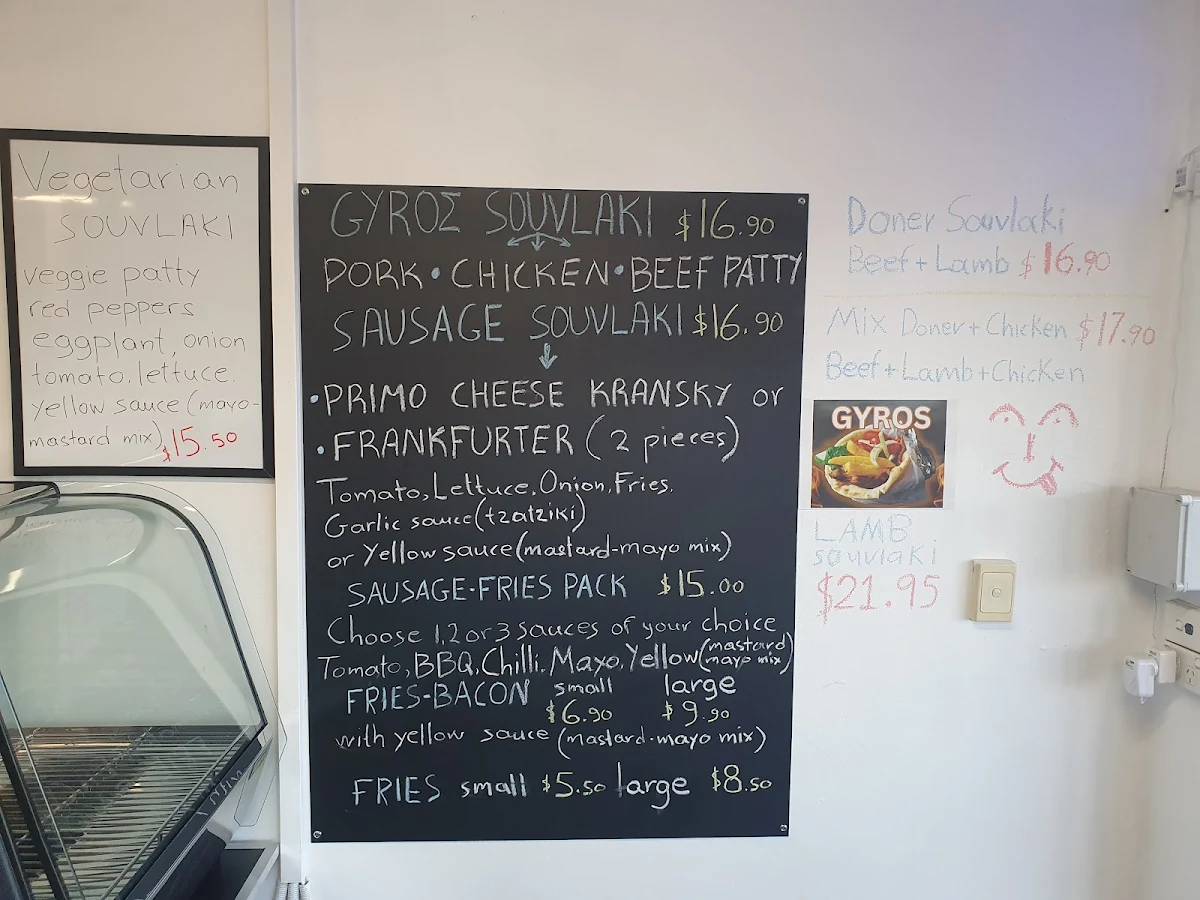 Vegetarian
SOUVLAKI
veggie patty
red peppers
eggplant, onion
tomato, lettuce.
yellow sauce (mayo-
mastard mix) $15.50
GYROΣ SOUVLAKI $16.90
PORK • CHICKEN • BEEF PATTY
SAUSAGE SOUVLAKI $16.90
• PRIMO CHEESE KRANSKY or
• FRANKFURTER (2 pieces)
Tomato, Lettuce, Onion, Fries.
Garlic sauce (tzatziki)
or Yellow sauce (mastard-mayo mix)
SAUSAGE-FRIES PACK $15.00
Choose 1,2 or 3 sauces of your choice
Tomato, BBQ, Chilli, Mayo, Yellow (mastard
mayo mix)
FRIES-BACON small large
$6.90 $9.90
with yellow sauce (mastard-mayo mix)
FRIES small $5.50 large $8.50
Doner Souvlaki
Beef + Lamb $16.90
Mix Doner + Chicken $17.90
Beef + Lamb + Chicken
GYROS
LAMB
souvlaki
$21.95